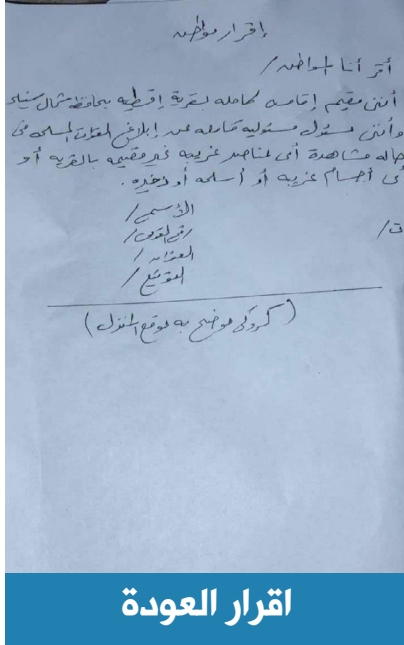 إقرار مواطن
أقر أنا المواطن /
أننى مقيم إقامه كامله بقرية إقطيه بمحافظة شمال سيناء
وأننى مسئول مسئوليه كامله عن إبلاغ القوات المسلحه فى
حاله مشاهدة أى عناصر غريبه غير مقيمه بالقريه أو
أى أجسام غريبه أو أسلحه أو ذخيره .
الأسم /
رقم القومى /
ت /
العنوان /
التوقيع /
( كروكى موضح به موقع المنزل )
اقرار العودة